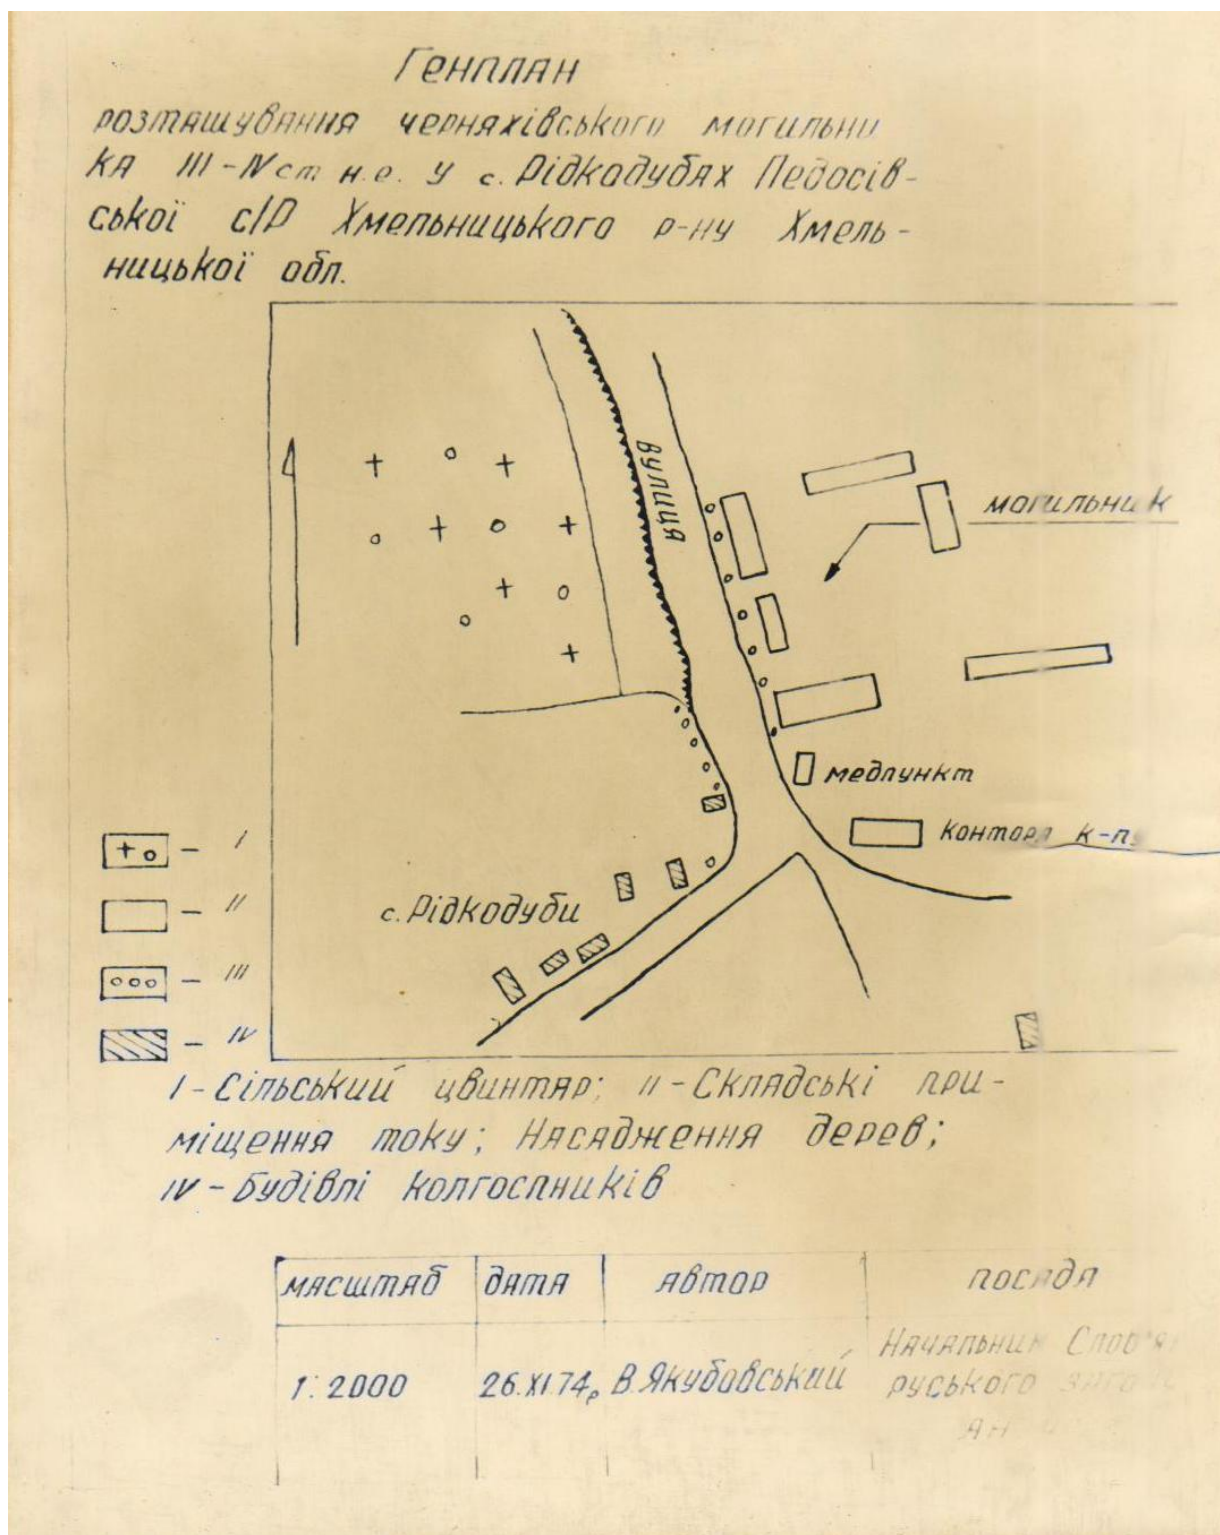 Генплан
розташування черняхівського могильни
ка III-IV ст н.е. у с. Рідкодубах Педосів-
ської с/Р Хмельницького р-ну Хмель-
ницької обл.
вулиця
могильник
медпункт
контора к-пу
с. Рідкодуби
+ о - I
- II
ооо - III
- IV
I - Сільський цвинтар; II - Складські при-
міщення току; Насадження дерев;
IV - Будівлі колгоспників
масштаб дата автор посада
1:2000 26.XI.74р В.Якубовський Начальник
руського